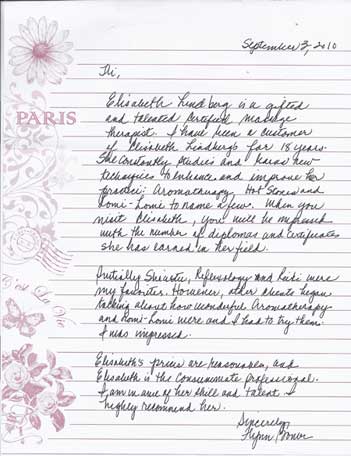 September 3, 2010
Hi,
Elisabeth Lindberg is a gifted
and talented certified massage
therapist. I have been a customer
of Elisabeth Lindbergs for 18 years.
She constantly studies and learns new
techniques to enhance and improve her
practice; Aromatherapy, Hot Stones and
Lomi-Lomi to name a few. When you
visit Elisabeth, you will be impressed
with the number of diplomas and certificates
she has earned in her field.
PARIS
Initially Shiatsu, Reflexology and Reiki were
my favorites. However, other clients began
talking about how wonderful Aromatherapy
and Lomi-Lomi were and I had to try them.
I was impressed.
C'est La Vie
Elisabeth's prices are reasonable, and
Elisabeth is the consummate professional.
I am in awe of her skill and talent. I
highly recommend her.
Sincerely,